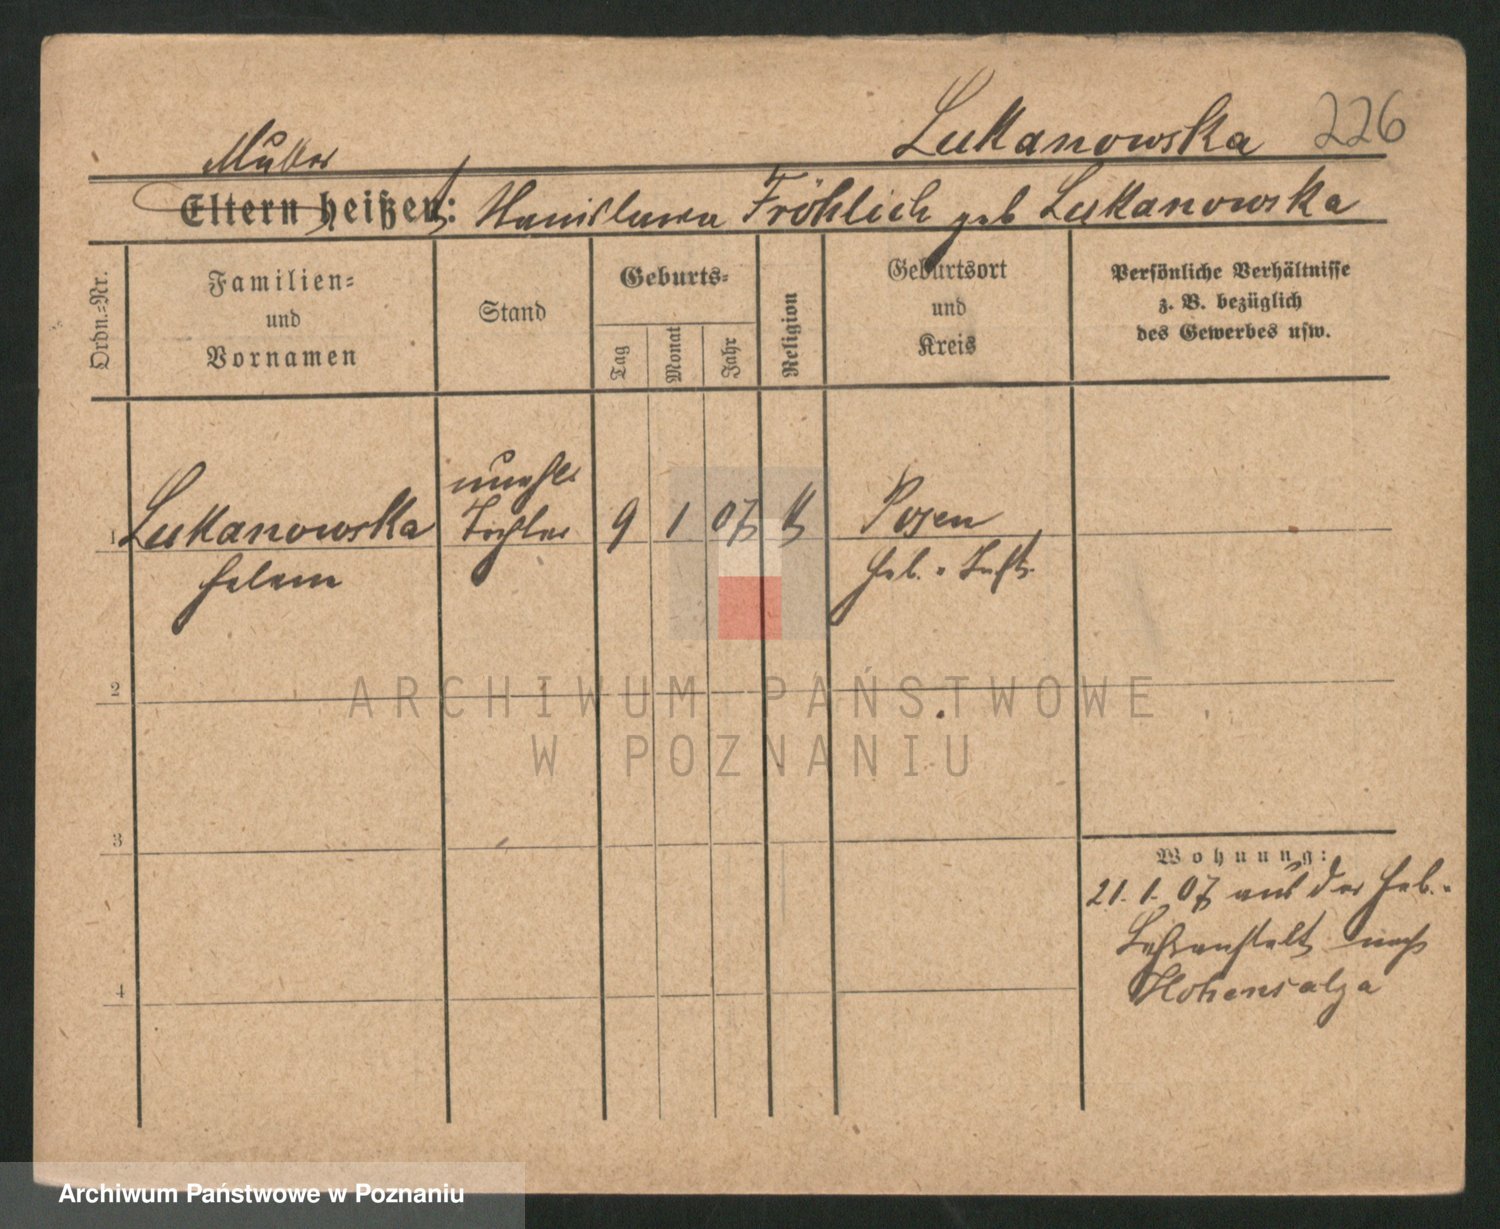 Lukanowska 226
Mutter
Eltern heißen: Stanislawa Fröhlich geb Lukanowska
Ordn.-Nr.
Familien-
und
Vornamen
Stand
Geburts-
Tag
Monat
Jahr
Religion
Geburtsort
und
Kreis
Persönliche Verhältnisse
z. B. bezüglich
des Gewerbes usw.
unehl
1 Lukanowska Tochter 9 1 07 k Posen
Helene Heb.-
2
ARCHIWUM PAŃSTWOWE
W POZNANIU
3
Wohnung:
21. 1. 07 aus der Heb.-
Lehranstalt nach
4 Hohensalza
Archiwum Państwowe w Poznaniu